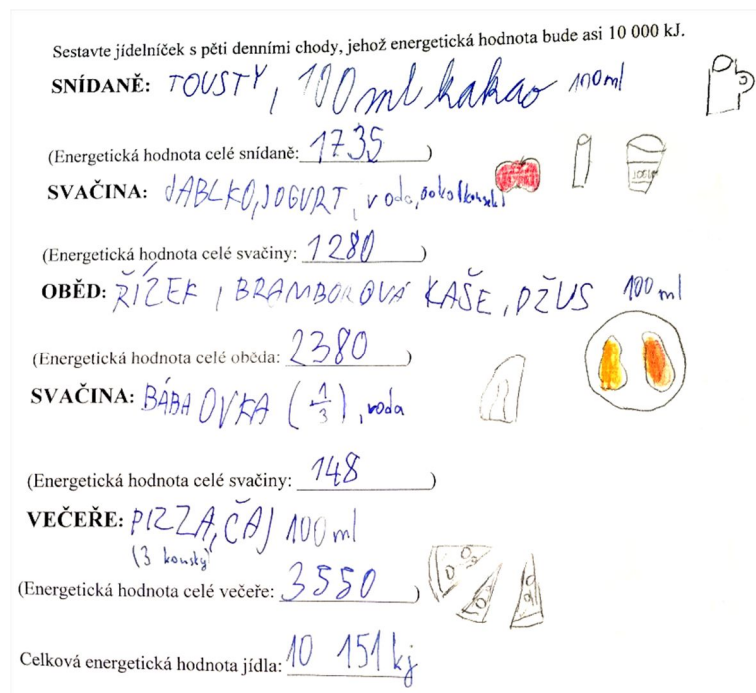 Sestavte jídelníček s pěti denními chody, jehož energetická hodnota bude asi 10 000 kJ.
SNÍDANĚ: TOUSTY, 100ml kakao 100ml
(Energetická hodnota celé snídaně: 1735)
SVAČINA: JABLKO, JOGURT, voda,
(Energetická hodnota celé svačiny: 1280)
OBĚD: ŘÍZEK, BRAMBOROVÁ KAŠE, DŽUS 100 ml
(Energetická hodnota celé oběda: 2380)
SVAČINA: BÁBAOVKA (1/3), voda
(Energetická hodnota celé svačiny: 148)
VEČEŘE: PIZZA, ČAJ 100ml
(3 kousky)
(Energetická hodnota celé večeře: 3550)
Celková energetická hodnota jídla: 10 151 kj